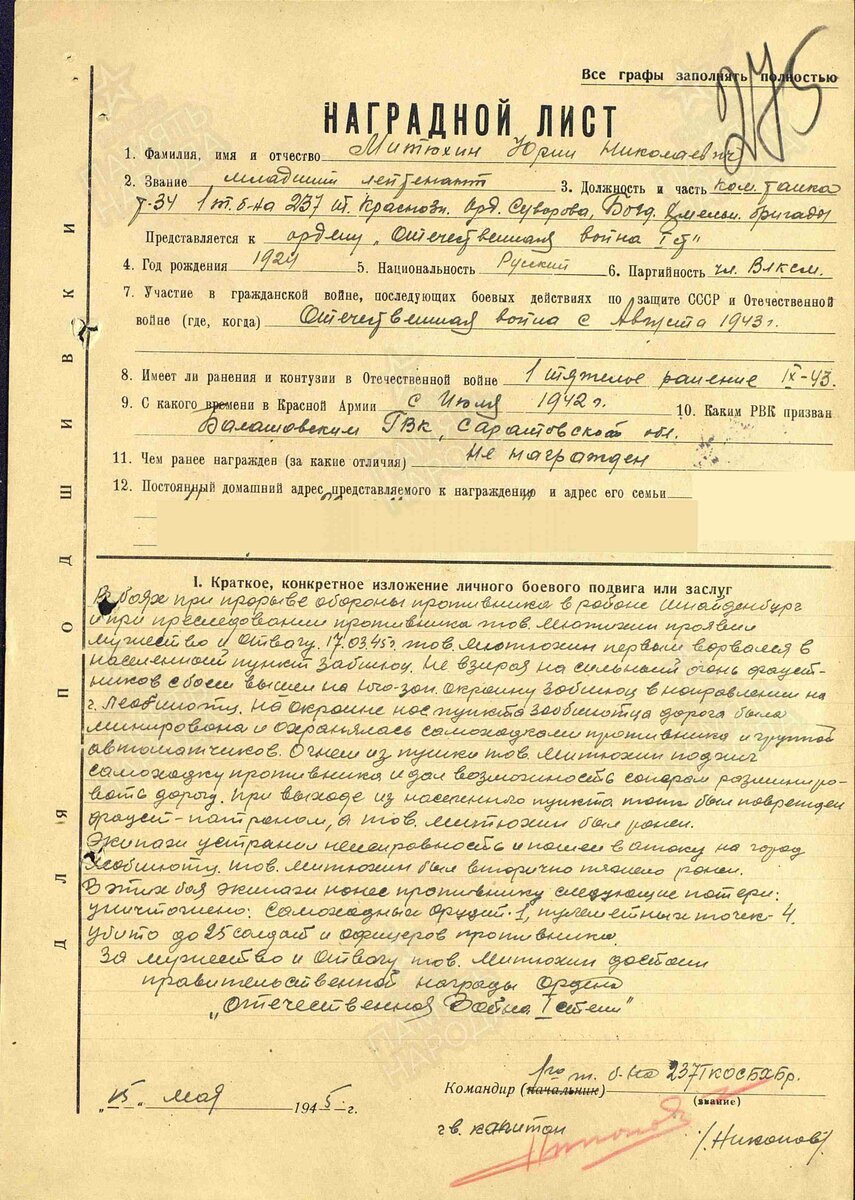 Все графы заполнять полностью
275
НАГРАДНОЙ ЛИСТ
1. Фамилия, имя и отчество Митюхин Юрий Николаевич
2. Звание младший лейтенант 3. Должность и часть ком. танка
Т-34 1 т. б-на 237 т. Краснозн. Орд. Суворова, Богд. Хмельн. бригады
Представляется к ордену „Отечественная война I ст"
4. Год рождения 1924 5. Национальность Русский 6. Партийность чл. Влксм.
7. Участие в гражданской войне, последующих боевых действиях по защите СССР и Отечественной
войне (где, когда) Отечественная война с Августа 1943 г.
8. Имеет ли ранения и контузии в Отечественной войне 1 тяжелое ранение IX-43.
9. С какого времени в Красной Армии с Июля 1942 г. 10. Каким РВК призван
Балашовским ГВК, Саратовской обл.
11. Чем ранее награжден (за какие отличия) Не награжден
12. Постоянный домашний адрес представляемого к награждению и адрес его семьи
I. Краткое, конкретное изложение личного боевого подвига или заслуг
В боях при прорыве обороны противника в районе Шнайденбург
и при преследовании противника тов. Мютихин проявил
мужество и отвагу. 17.03.45г. тов. Митюхин первым ворвался в
населенный пункт Забшюц. Не взирая на сильный огонь фауст-
ников с боем вышел на юго-зап. окраину Забшюц в направлении на
г. Леобшютц. На окраине нас пункта Заобшютца дорога была
минирована и охранялась самоходками противника и группой
автоматчиков. Огнем из пушки тов. Митюхин поджег
самоходку противника и дал возможность саперам разминиро-
вать дорогу. При выходе из населенного пункта танк был поврежден
фауст-патроном, а тов. Митюхин был ранен.
Экипаж устранил неисправность и пошел в атаку на город
Леобшютц. тов. Митюхин был вторично тяжело ранен.
В этих боях экипаж нанес противнику следующие потери:
уничтожено: самоходных орудий-1, пулеметных точек-4.
убито до 25 солдат и офицеров противника.
За мужество и отвагу тов. Митюхин достоин
правительственной награды Ордена
„Отечественная Война I степени"
Командир (начальник) 1го т. б-на 237 ТКОСБХБр.
(звание)
„15" мая 1945 г.
гв. капитан /Никонов/
ДЛЯ ПОДШИВКИ
ПАМЯТЬ НАРОДА